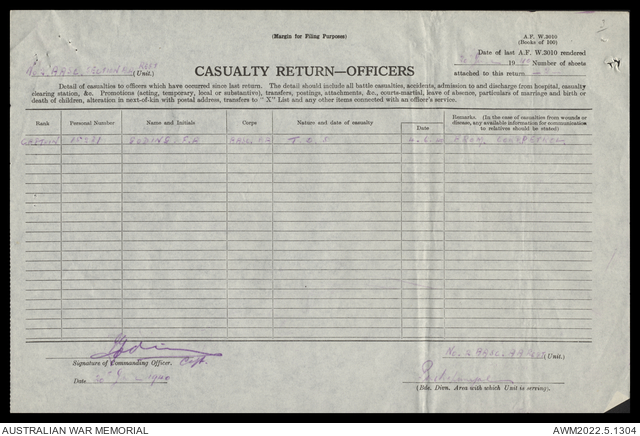 (Margin for Filing Purposes)
A.F. W.3010
(Books of 100)
Date of last A.F. W.3010 rendered
19 40 Number of sheets
attached to this return
(Unit.)
CASUALTY RETURN—OFFICERS
Detail of casualties to officers which have occurred since last return. The detail should include all battle casualties, accidents, admission to and discharge from hospital, casualty
clearing station, &c. Promotions (acting, temporary, local or substantive), transfers, postings, attachments, &c., courts-martial, leave of absence, particulars of marriage and birth or
death of children, alteration in next-of-kin with postal address, transfers to "X" List and any other items connected with an officer's service.
Rank Personal Number Name and Initials Corps Nature and date of casualty Date Remarks. (In the case of casualties from wounds or disease, any available information for communication to relatives should be stated)
T.O.S
Signature of Commanding Officer. Capt.
No. 2 (Unit.)
Date 1940
(Bde. Divn. Area with which Unit is serving).
AUSTRALIAN WAR MEMORIAL
AWM2022.5.1304